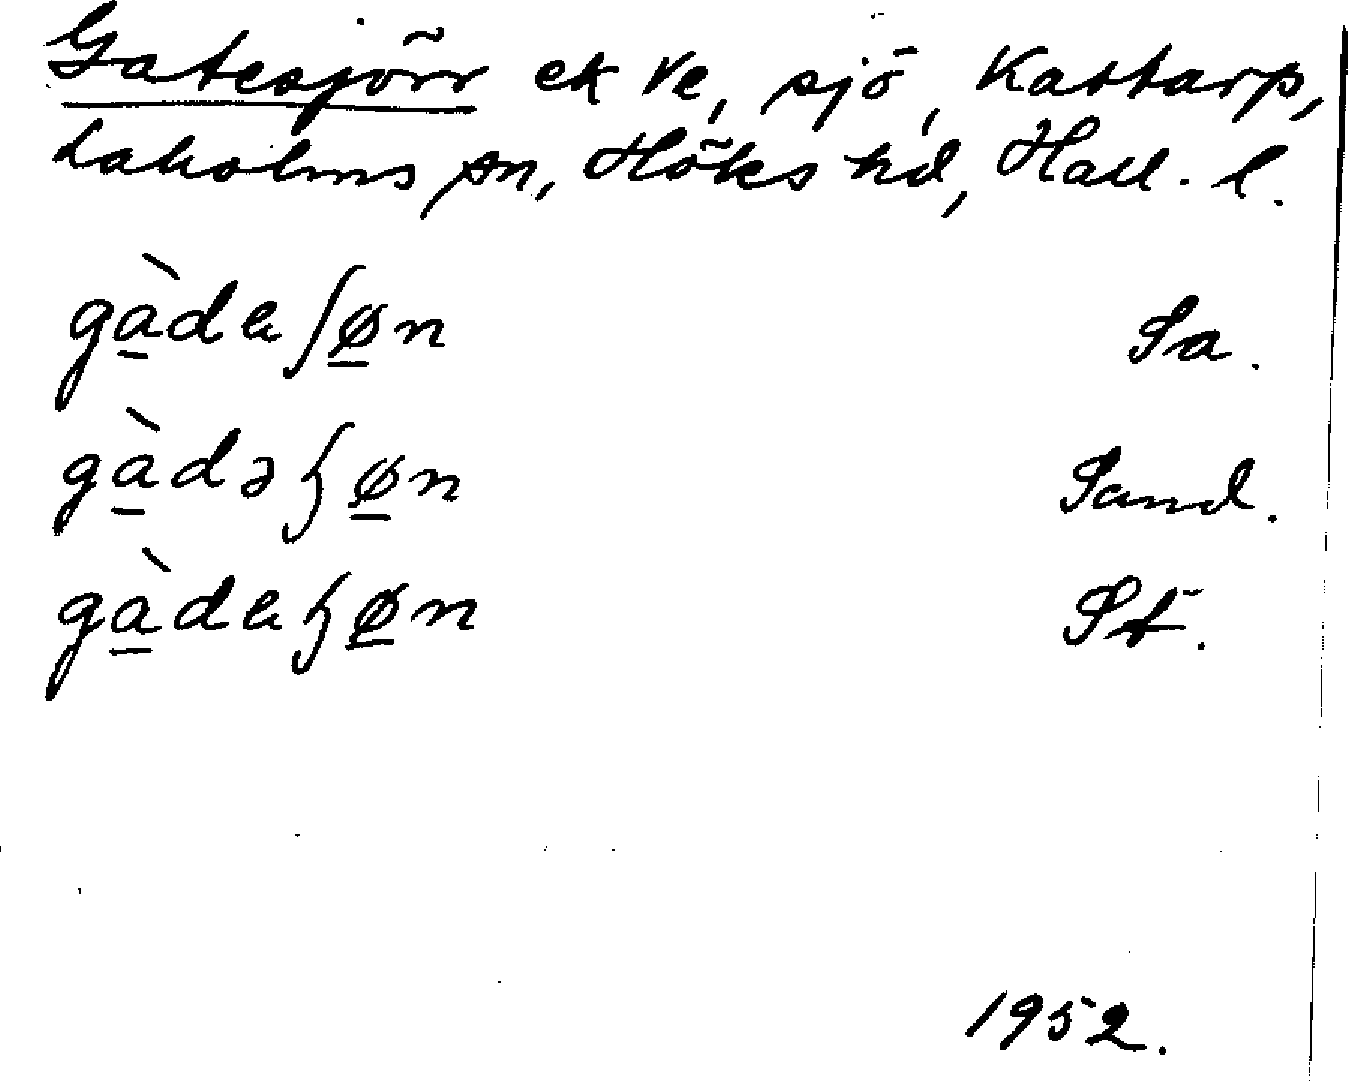 Gatesjörr ek Ve, sjö, Kattarp,
Laholms sn, Höks hd, Hall. l.
gàdeʃøn Sa.
gàdəɧøn Sand.
gàdeɧøn St.
1952.